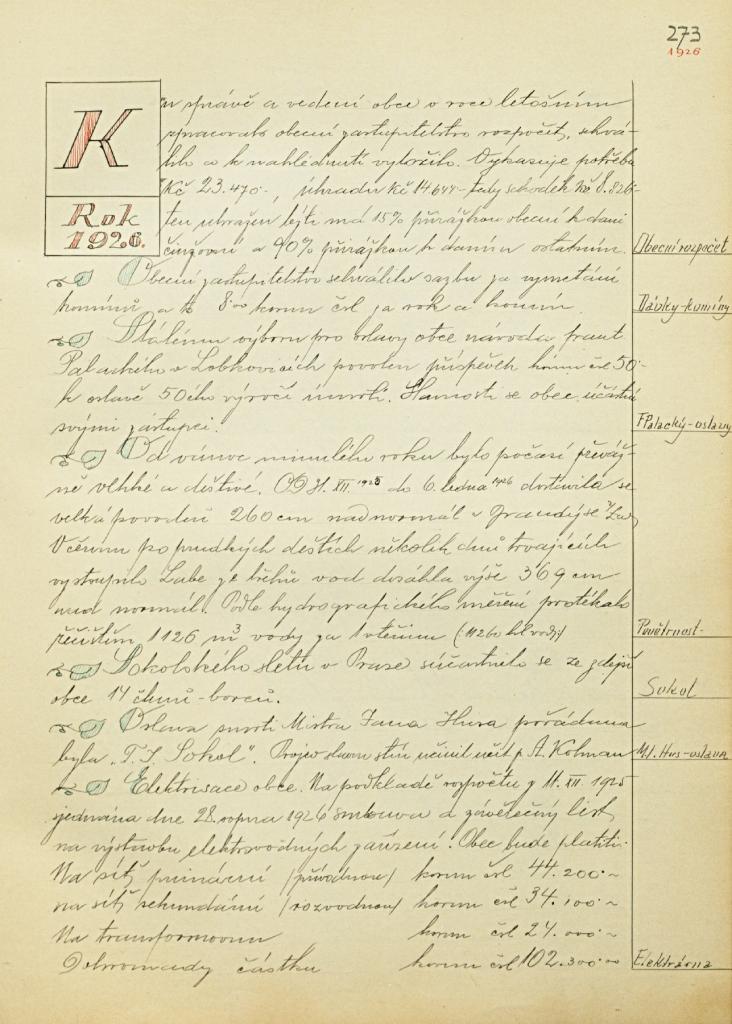 273
1926
K
Rok
1926.
u správě a vedení obce v roce letošním
zpracovalo obecní zastupitelstvo rozpočet, schvá-
lilo a k nahlédnutí vyložilo. Vykazuje potřebu
Kč 23.470·-, úhradu Kč 14.644- tedy schodek Kč 8.826-
ten uhražen býti má 15% přirážkou obecní k dani
činžovní a 90% přirážkou k daním ostatním.
Obecní rozpočet
Obecní zastupitelstvo schválilo sazbu za vymetání
komínů a to 8·00 korun čsl za rok a komín.
Dávky-komíny
Stálému výboru pro oslavy obce národa Frant.
Palackého v Lobkovicích povolen příspěvek korun čsl 50·-
k oslavě 50tiho výročí úmrtí. Slavnosti se obec účastní
svými zástupci.
F. Palacký-oslavy
Od vánoc minulého roku bylo počasí převáž-
ně vlhké a deštivé. Od 31. XII. 1925 do 6. ledna 1926 dostavila se
velká povodeň 260 cm nad normál v Brandýse n/Lab.
V červnu po prudkých deštích několik dnů trvajících
vystoupilo Labe ze břehů vod dosáhla výše 369 cm
nad normál. Podle hydrografického měření protékalo
řečištěm 1126 m³ vody za 1 vteřinu (11260 hl vody)
Povětrnost-
Sokolského sletu v Praze súčastnilo se ze zdejší
obce 14 členů-borců.
Sokol
Oslava smrti Mistra Jana Husa pořádána
byla "T. J. Sokol". Projev slavnostní učinil učit. p. A. Kolman
M. J. Hus-oslava
Elektrisace obce. Na podkladě rozpočtu z 11. XII. 1925
sjednána dne 28. srpna 1926 smlouva a závěrečný list
na výstavbu elektrovodných zařízení. Obec bude platiti:
Na síť primérní (přívodnou) korun čsl 44.200·-
na síť sekundární (rozvodnou) korun čsl 34.100·-
Na transformovnu korun čsl 24.000·-
Dohromady částku korun čsl 102.300·00
Elektrárna